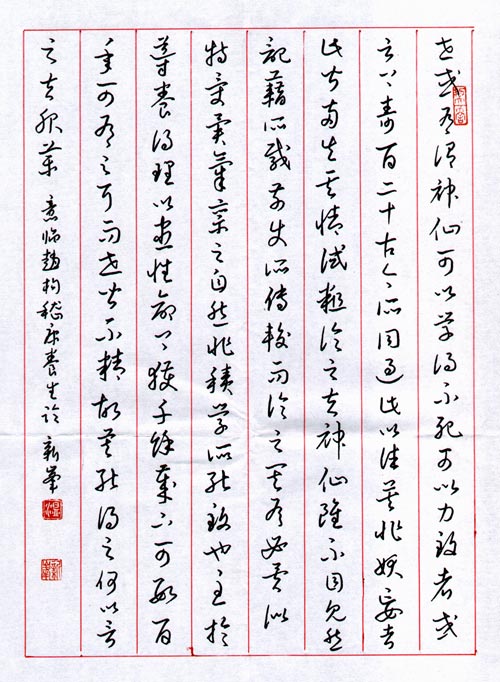 世或有謂神仙可以學得不死可以力致者或
云上壽百二十古今所同過此以往莫非妖妄者
此皆兩失其情試粗論之夫神仙雖不目見然
記藉所載前史所傳較而論之其有必矣似
特受異氣稟之自然非積學所能致也至於
導養得理以盡性命上獲千餘歲下可數百
年可有之耳而世皆不精故莫能得之何以言
之夫服藥 意臨趙構嵇康養生論 新峯